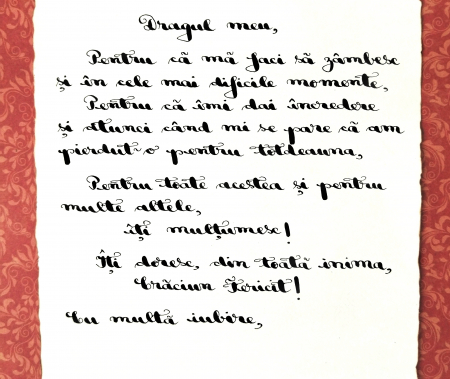 Dragul meu,
Pentru că mă faci să zâmbesc
și în cele mai dificile momente,
Pentru că îmi dai încredere
și atunci când mi se pare că am
pierdut-o pentru totdeauna,
Pentru toate acestea și pentru
multe altele,
îți mulțumesc!
Îți doresc, din toată inima,
Crăciun Fericit!
Cu multă iubire,